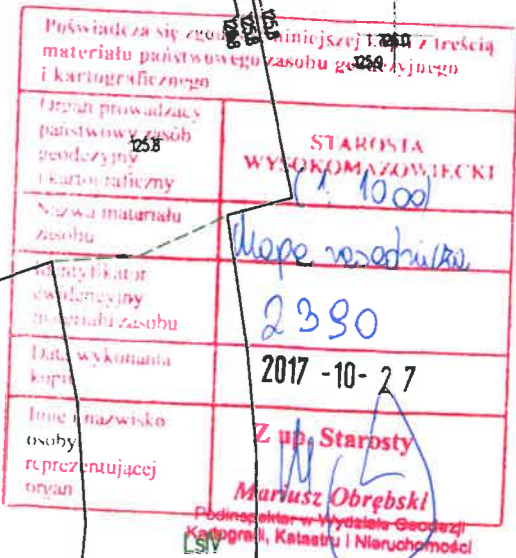 125.8
125.8
126.8
125.9
Poświadcza się niniejszej z treścią
materiału państwowego zasobu geodezyjnego
i kartograficznego
Organ prowadzący
państwowy zasób
geodezyjny
i kartograficzny
125.8
STAROSTA
WYSOKOMAZOWIECKI
(1:1000)
Nazwa materiału
zasobu
Mapa zasadnicza
Identyfikator
ewidencyjny
materiału zasobu
2390
Data wykonania
kopii
2017 -10- 27
Imię i nazwisko
osoby
reprezentującej
organ
Z up. Starosty
Mariusz Obrębski
Podinspektor w Wydziale Geodezji
Kartografii, Katastru i Nieruchomości
LsIV